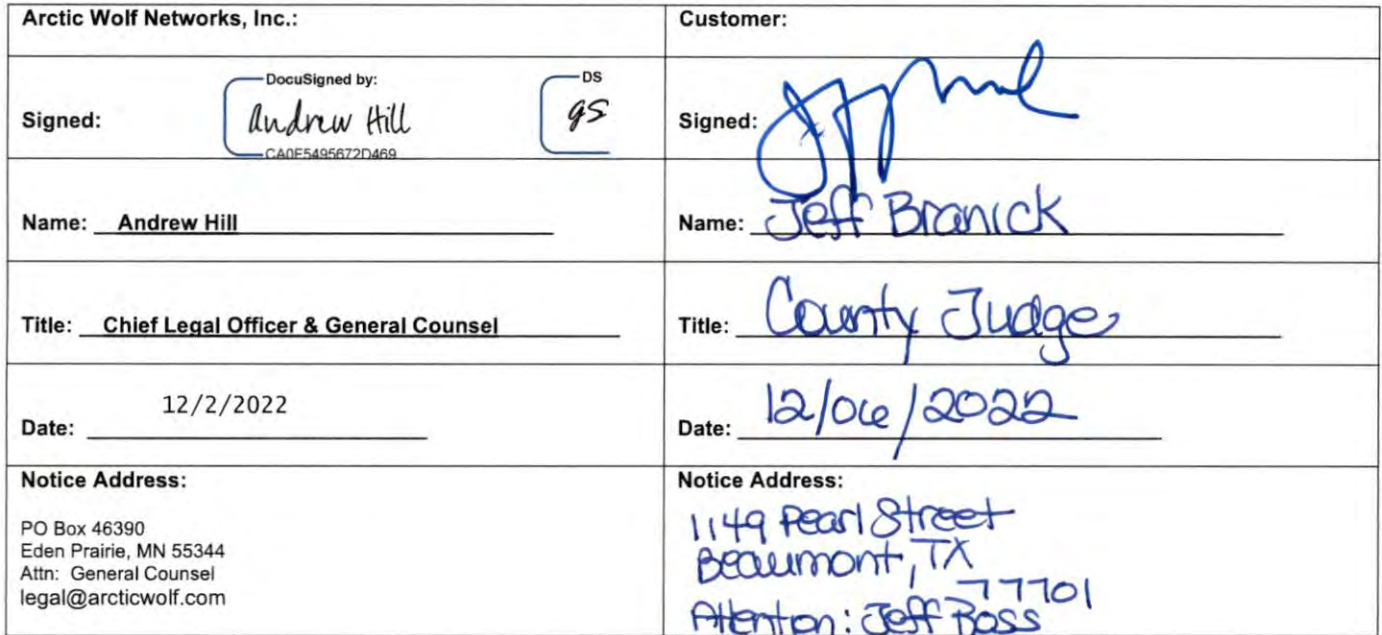 Arctic Wolf Networks, Inc.:
Customer:
DocuSigned by:
DS
Signed:
Andrew Hill
gs
CA0F5495672D469
Signed:
Name: Andrew Hill
Name: Jeff Branick
Title: Chief Legal Officer & General Counsel
Title: County Judge
Date: 12/2/2022
Date: 12/06/2022
Notice Address:
PO Box 46390
Eden Prairie, MN 55344
Attn: General Counsel
legal@arcticwolf.com
Notice Address:
1149 Pearl Street
Beaumont, TX
77701
Attention: Jeff Ross